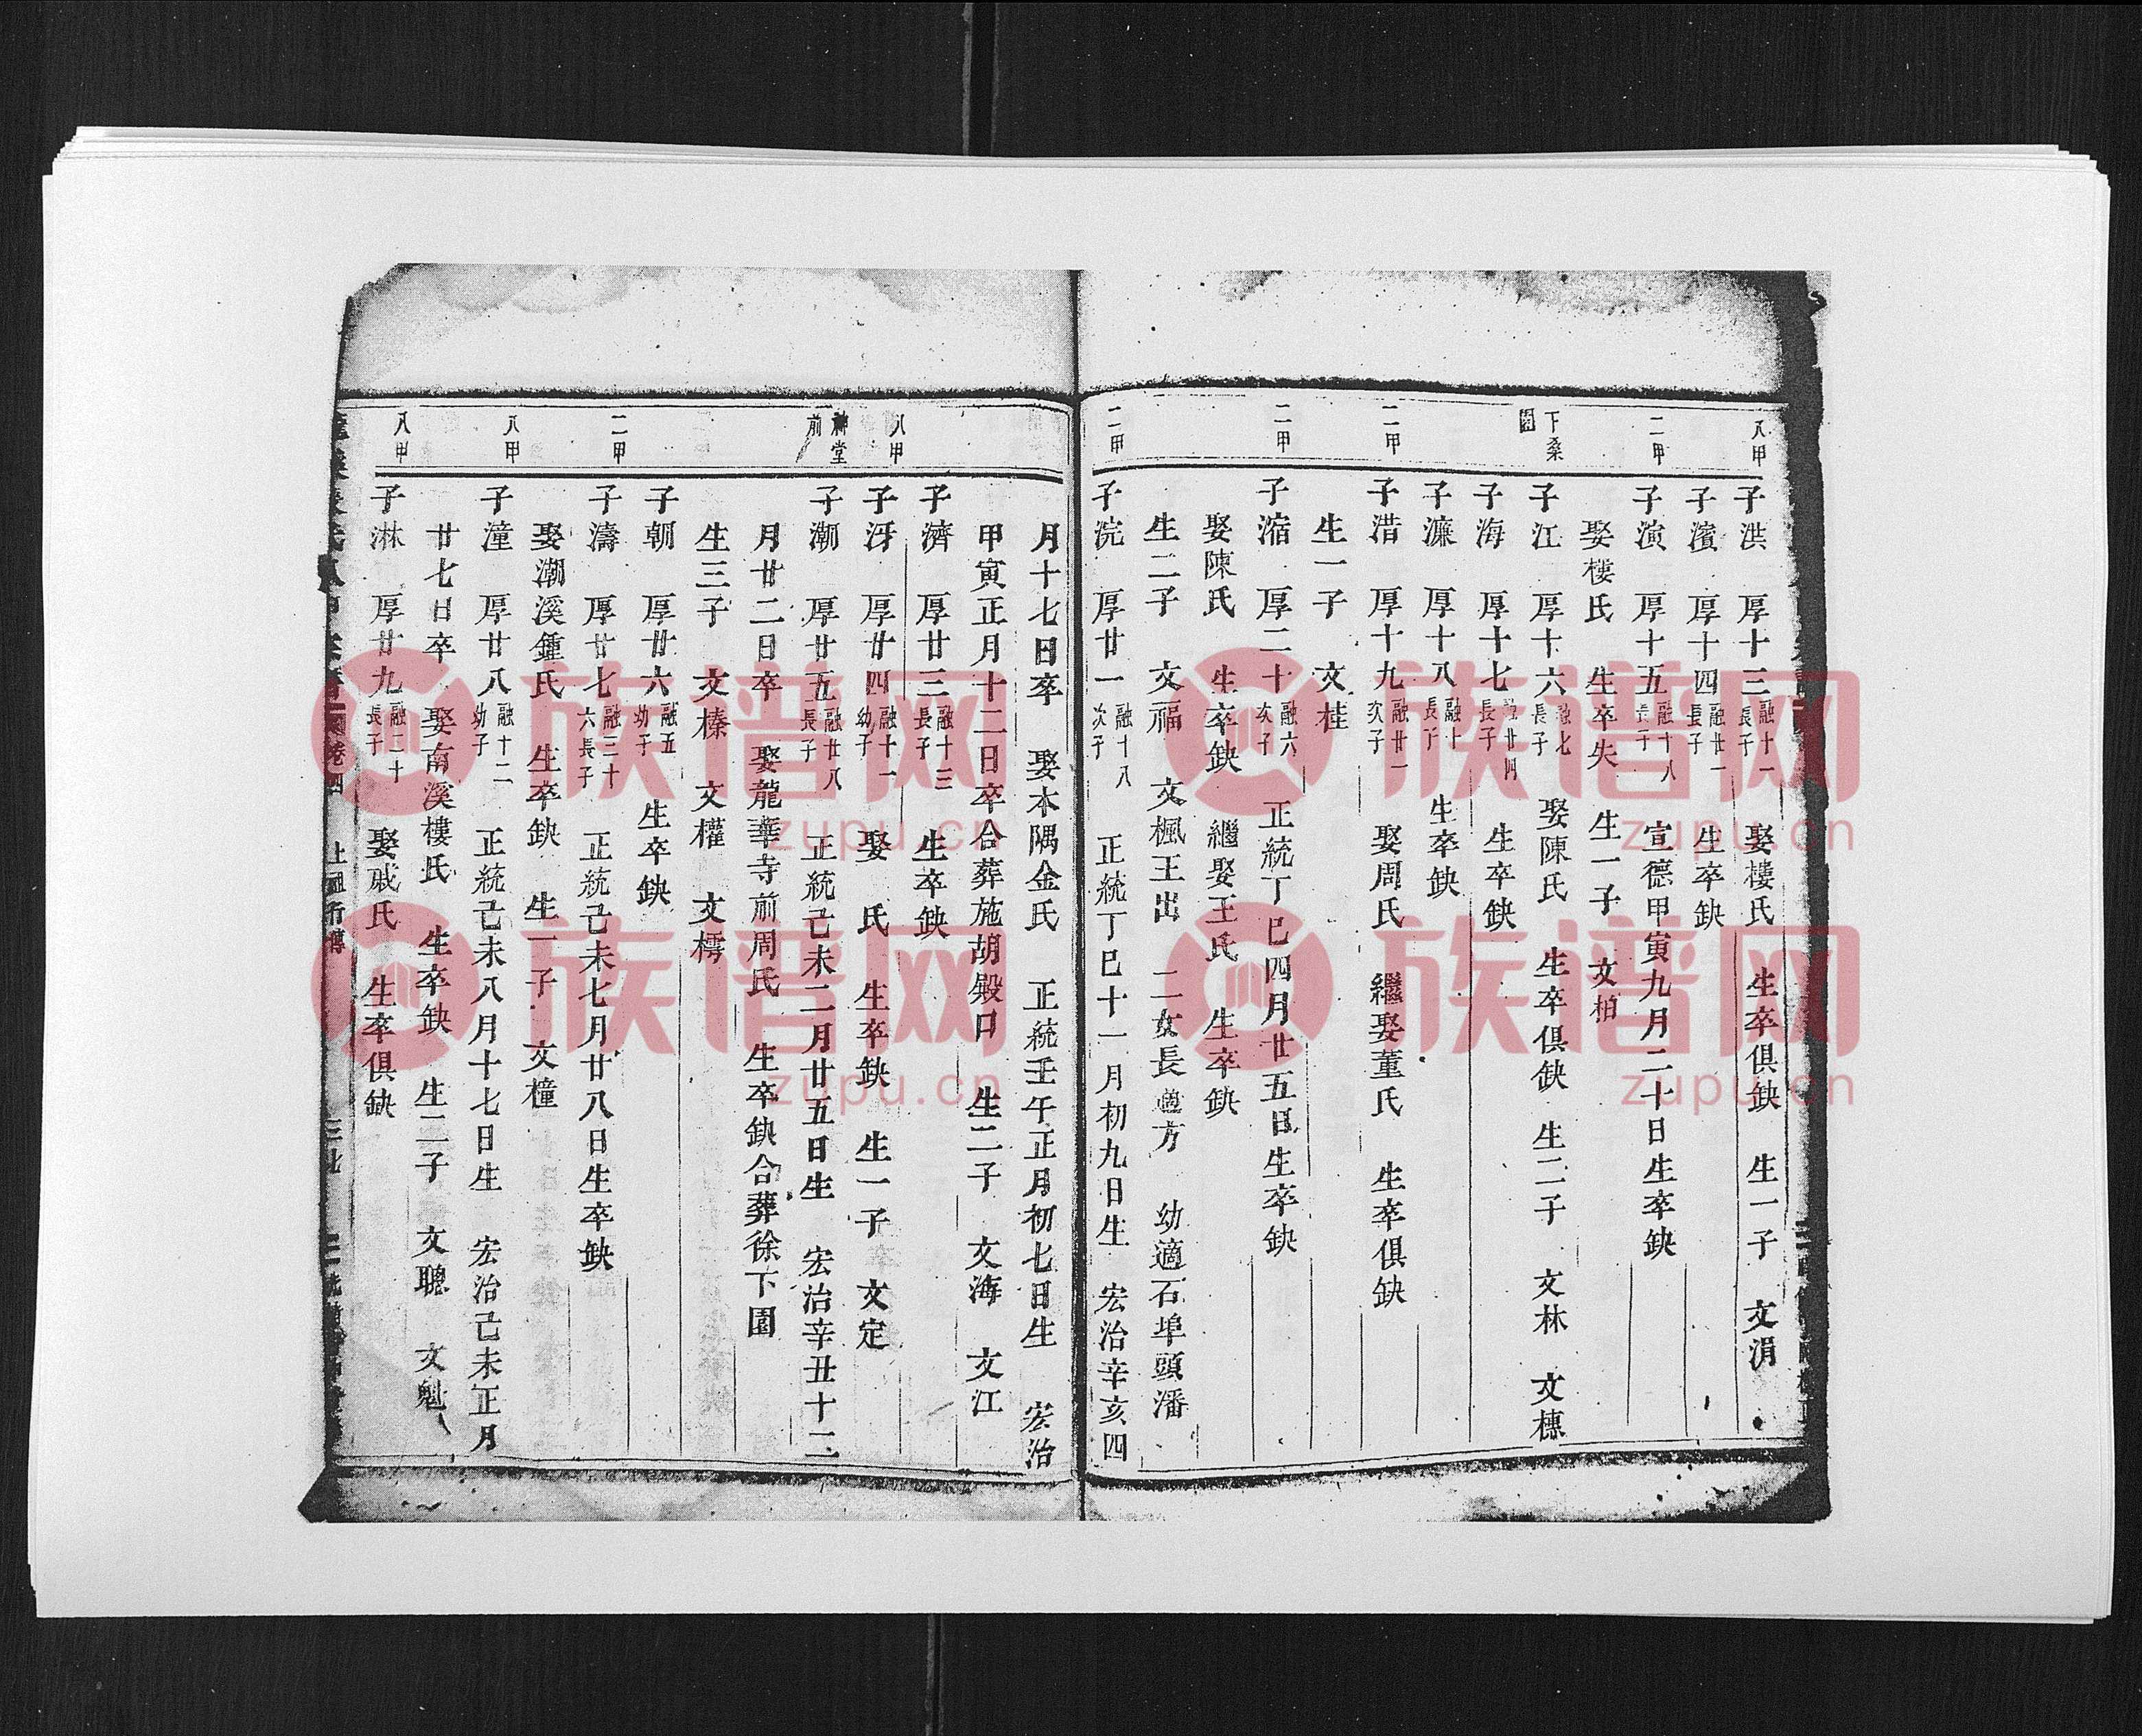 八甲
二甲
下桑園
二甲
二甲
二甲
子洪 厚十三 融十一長子 娶樓氏 生卒俱缺 生一子 文涓
子濱 厚十四 融廿一長子 生卒缺
子演 厚十五 融十八長子 宣德甲寅九月二十日生卒缺
娶樓氏 生卒失 生一子 文柏
子江 厚十六 融七長子 娶陳氏 生卒俱缺 生二子 文林 文櫖
子海 厚十七 融廿四長子 生卒缺
子濂 厚十八 融十長子 生卒缺
子浩 厚十九 融廿一次子 娶周氏 繼娶董氏 生卒俱缺
生一子 文桂
子縮 厚二十 融六次子 正統丁巳四月廿五日生卒缺
娶陳氏 生卒缺 繼娶王氏 生卒缺
生二子 文福 文楓王出 二女長適方 幼適石埠頭潘
子浣 厚廿一 融十八次子 正統丁巳十一月初九日生 宏治辛亥四
八甲
神堂前
二甲
八甲
八甲
月十七日卒 娶本隅金氏 正統壬午正月初七日生 宏治
甲寅正月十二日卒合葬施胡殿口 生二子 文海 文江
子濟 厚廿三 融十三長子 生卒缺
子泘 厚廿四 融十一幼子 娶 氏 生卒缺 生一子 文定
子潮 厚廿五 融廿八長子 正統己未二月廿五日生 宏治辛丑十二
月廿二日卒 娶龍華寺前周氏 生卒缺合葬徐下園
生三子 文榛 文權 文樗
子朝 厚廿六 融五幼子 生卒缺
子濤 厚廿七 融三十六長子 正統己未七月廿八日生卒缺
娶潮溪鍾氏 生卒缺 生一子 文橦
子潼 厚廿八 融十二幼子 正統己未八月十七日生 宏治己未正月
廿七日卒 娶南溪樓氏 生卒缺 生二子 文聰 文魁
子淋 厚廿九 融二十長子 娶戚氏 生卒俱缺
卷四
族谱网
zupu.cn
族谱网
zupu.cn
族谱网
zupu.cn
族谱网
zupu.cn